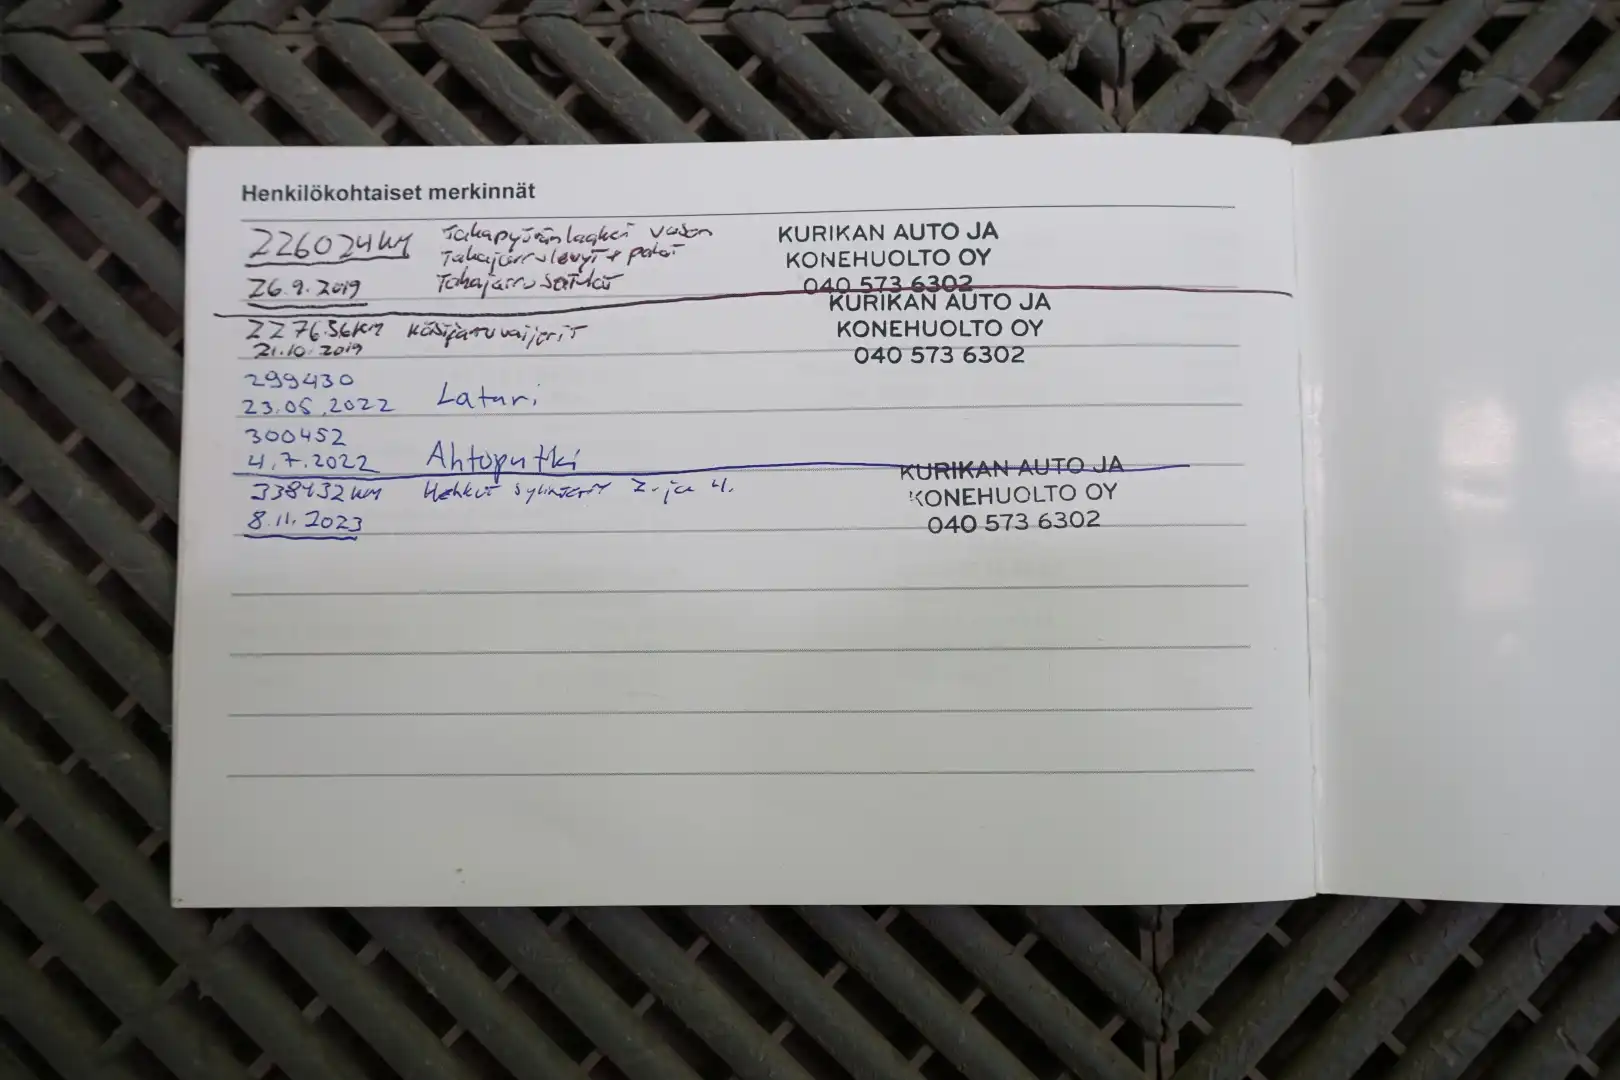 Henkilökohtaiset merkinnät
226024km Takapyöränlaakeri vasen KURIKAN AUTO JA
Takajarrulevyt + palat KONEHUOLTO OY
26.9.2019 Takajarrusatulat 040 573 6302
227656km Käsijarruvaijerit KURIKAN AUTO JA
21.10.2019 KONEHUOLTO OY
040 573 6302
299430
23.05.2022 Laturi
300452
4.7.2022 Ahtoputki KURIKAN AUTO JA
338432km Hehkut sylinterit 2. ja 4. KONEHUOLTO OY
8.11.2023 040 573 6302